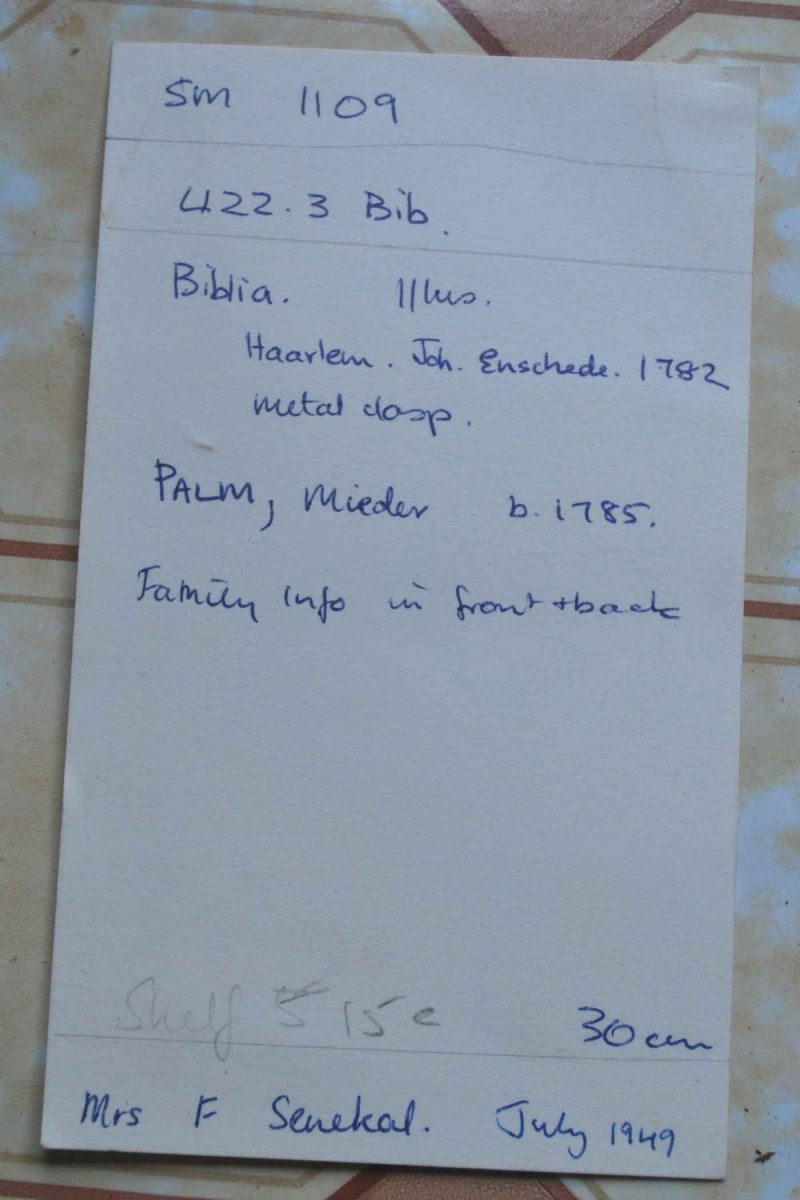 SM 1109
422.3 Bib.
Biblia. Illus.
Haarlem. Joh. Enschede. 1782
metal clasp.
PALM, Mieder b. 1785.
Family info in front + back
Shelf 5 15c
30 cm
Mrs F Senekal. July 1949